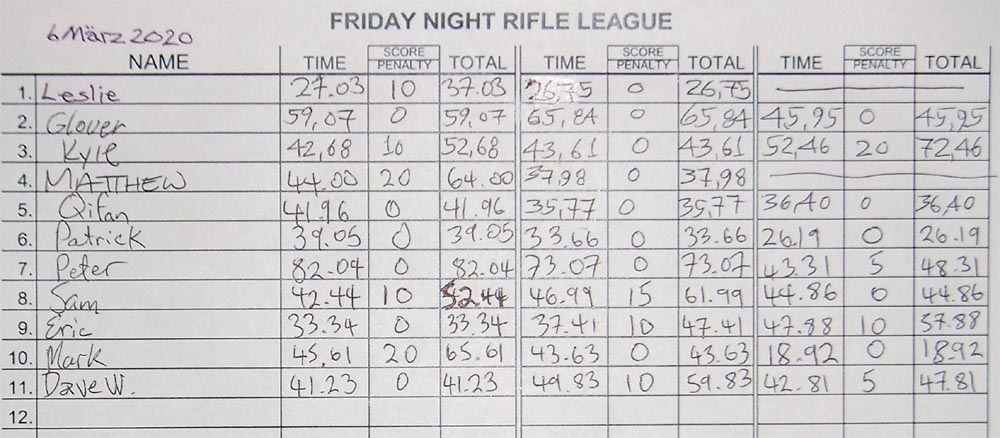 FRIDAY NIGHT RIFLE LEAGUE
6 März 2020
NAME TIME SCORE PENALTY TOTAL TIME SCORE PENALTY TOTAL TIME SCORE PENALTY TOTAL
1. Leslie 27.03 10 37.03 26,75 0 26,75
2. Glover 59,07 0 59,07 65,84 0 65,84 45,95 0 45,95
3. Kyle 42,68 10 52,68 43,61 0 43,61 52,46 20 72,46
4. MATTHEW 44.00 20 64.00 37,98 0 37,98
5. Qifan 41.96 0 41.96 35,77 0 35,77 36,40 0 36,40
6. Patrick 39.05 0 39.05 33.66 0 33.66 26.19 0 26.19
7. Peter 82.04 0 82.04 73.07 0 73.07 43.31 5 48.31
8. Sam 42.44 10 52.44 46.99 15 61.99 44.86 0 44.86
9. Eric 33.34 0 33.34 37.41 10 47.41 47.88 10 57.88
10. Mark 45.61 20 65.61 43.63 0 43.63 18.92 0 18.92
11. Dave W. 41.23 0 41.23 49.83 10 59.83 42.81 5 47.81
12.